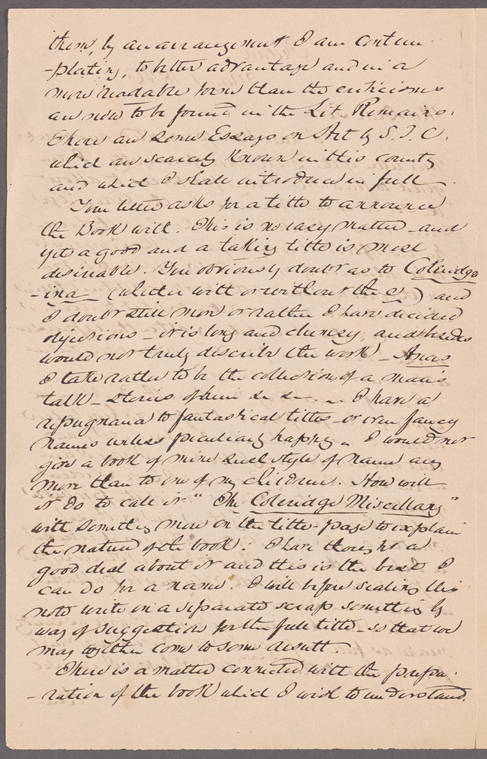 them, by an arrangement I am contem-
-plating, to better advantage and in a
more readable form than the criticisms
as now to be found in the Lit Remains.
There are some Essays on Art by S. T. C.
which are scarcely known in this country
and which I shall introduce in full.
Your letter asks for a title to announce
the Book with. This is no easy matter - and
yet a good and a taking title is most
desirable. You obviously doubt as to Coleridge
-ina (whether with or without the e) and
I doubt still more or rather I have decided
objections - it is long and clumsy, and besides
would not truly describe the work - Anas
I take rather to be the collection of a man's
talk - stories of him &c &c - . I have a
repugnance to fantastical titles - or even fancy
names unless peculiarly happy - I would not
give a book of mine such style of name any
more than to one of my children. How will
it do to call it "The Coleridge Miscellany"
with something more on the title-page to explain
the nature of the book. I have thought a
good deal about it and this is the best I
can do for a name. I will before sealing this
note write on a separate scrap something by
way of suggestion for the full title - so that we
may together come to some result.
There is a matter connected with the prepa-
-ration of the book which I wish to understand.